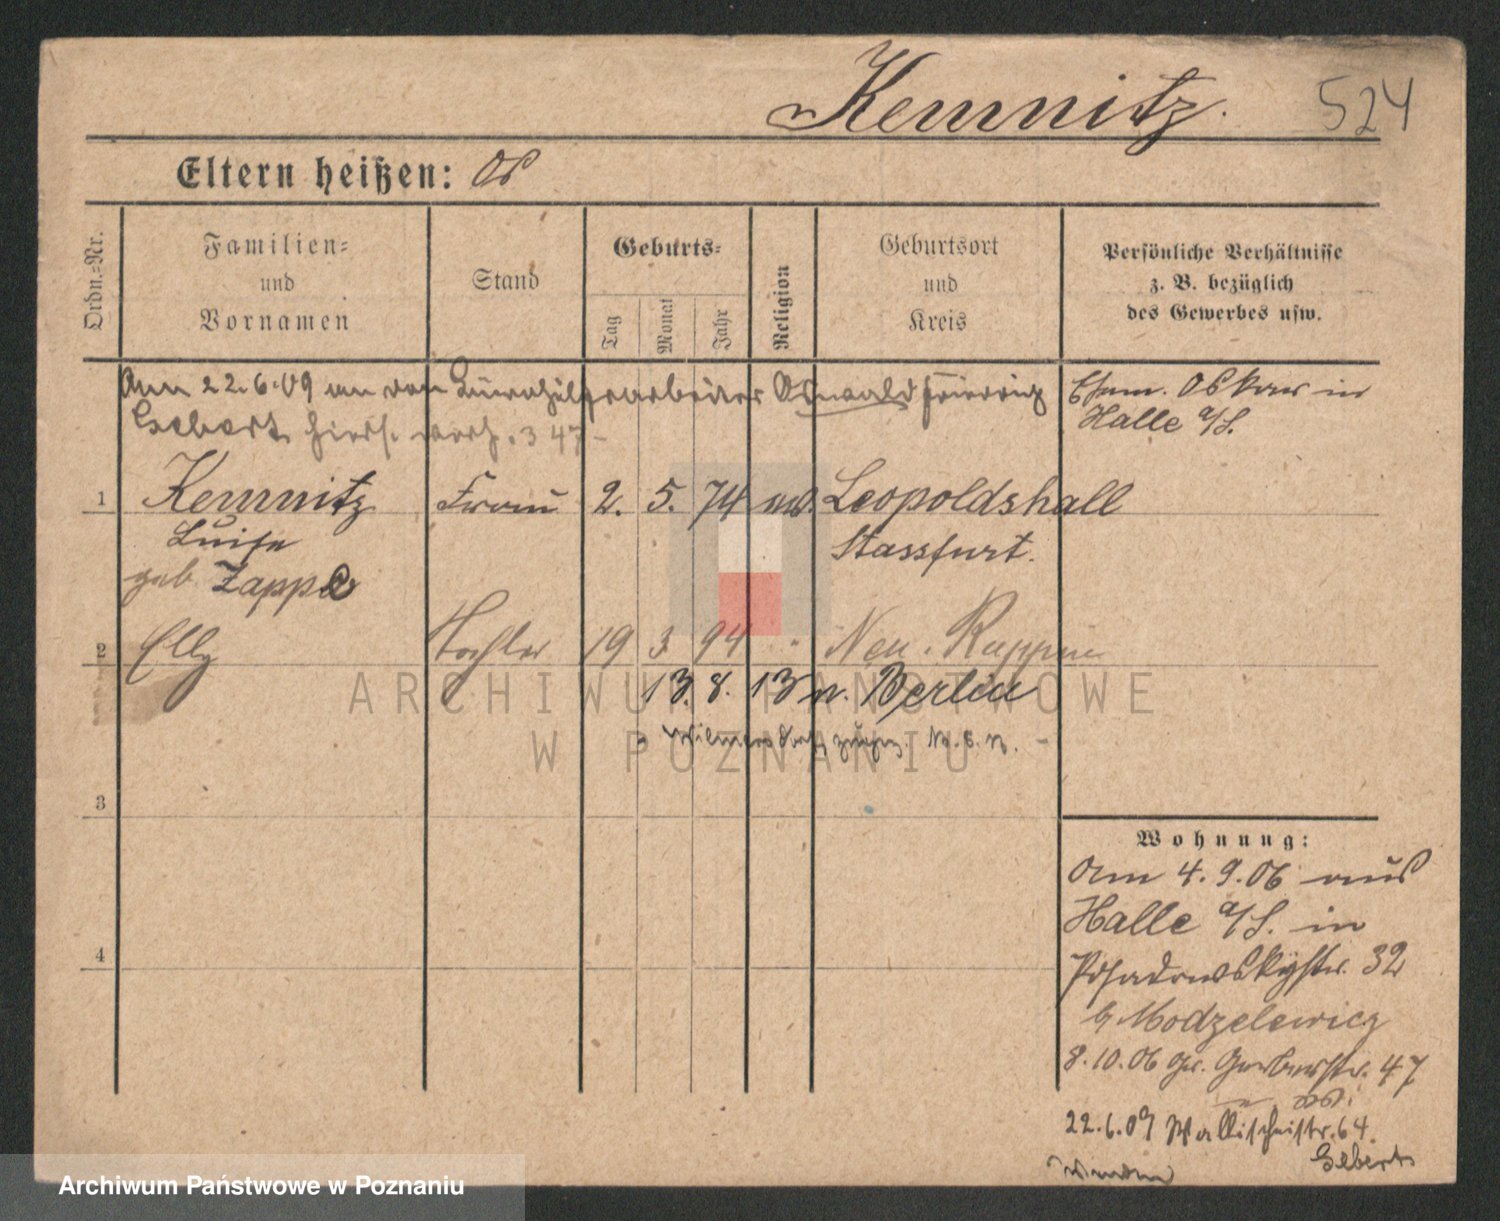 Kemnitz.
524
Eltern heißen:
Ordn.=Nr.
Familien=
und
Vornamen
Stand
Geburts=
Tag
Monat
Jahr
Religion
Geburtsort
und
Kreis
Persönliche Verhältnisse
z. B. bezüglich
des Gewerbes usw.
Am 22.6.09 an den Oswald
Gebert verh. 347
Ehem. Oskar in
Halle a/S.
1 Kemnitz Frau 2. 5. 74 Leopoldshall
Luise Stassfurt.
geb. Zappe
2 Elly Tochter 19 3 94 Neu-Ruppin
13. 8. 13 n. Berlin
Wilmersdorf
3
4
Wohnung:
Am 4.9.06 aus
Halle a/S. in
Posadowskystr. 32
b Modzelewicz
8.10.06 Gr. Gerberstr. 47
22.6.09 Wallischeistr. 64.
Gebert
ARCHIWUM PAŃSTWOWE
W POZNANIU
Archiwum Państwowe w Poznaniu